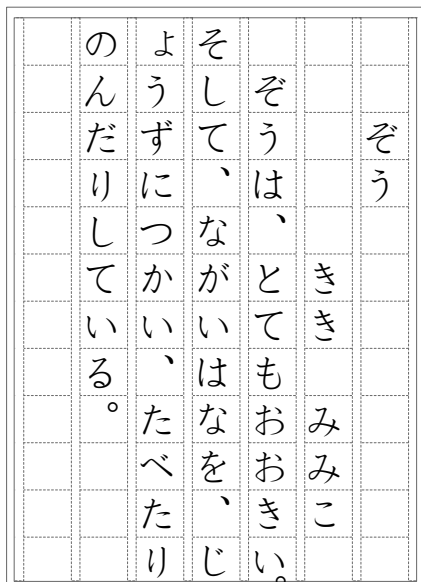 ぞう
きき　みみこ
ぞうは、とてもおおきい。
そして、ながいはなを、じ
ょうずにつかい、たべたり
のんだりしている。